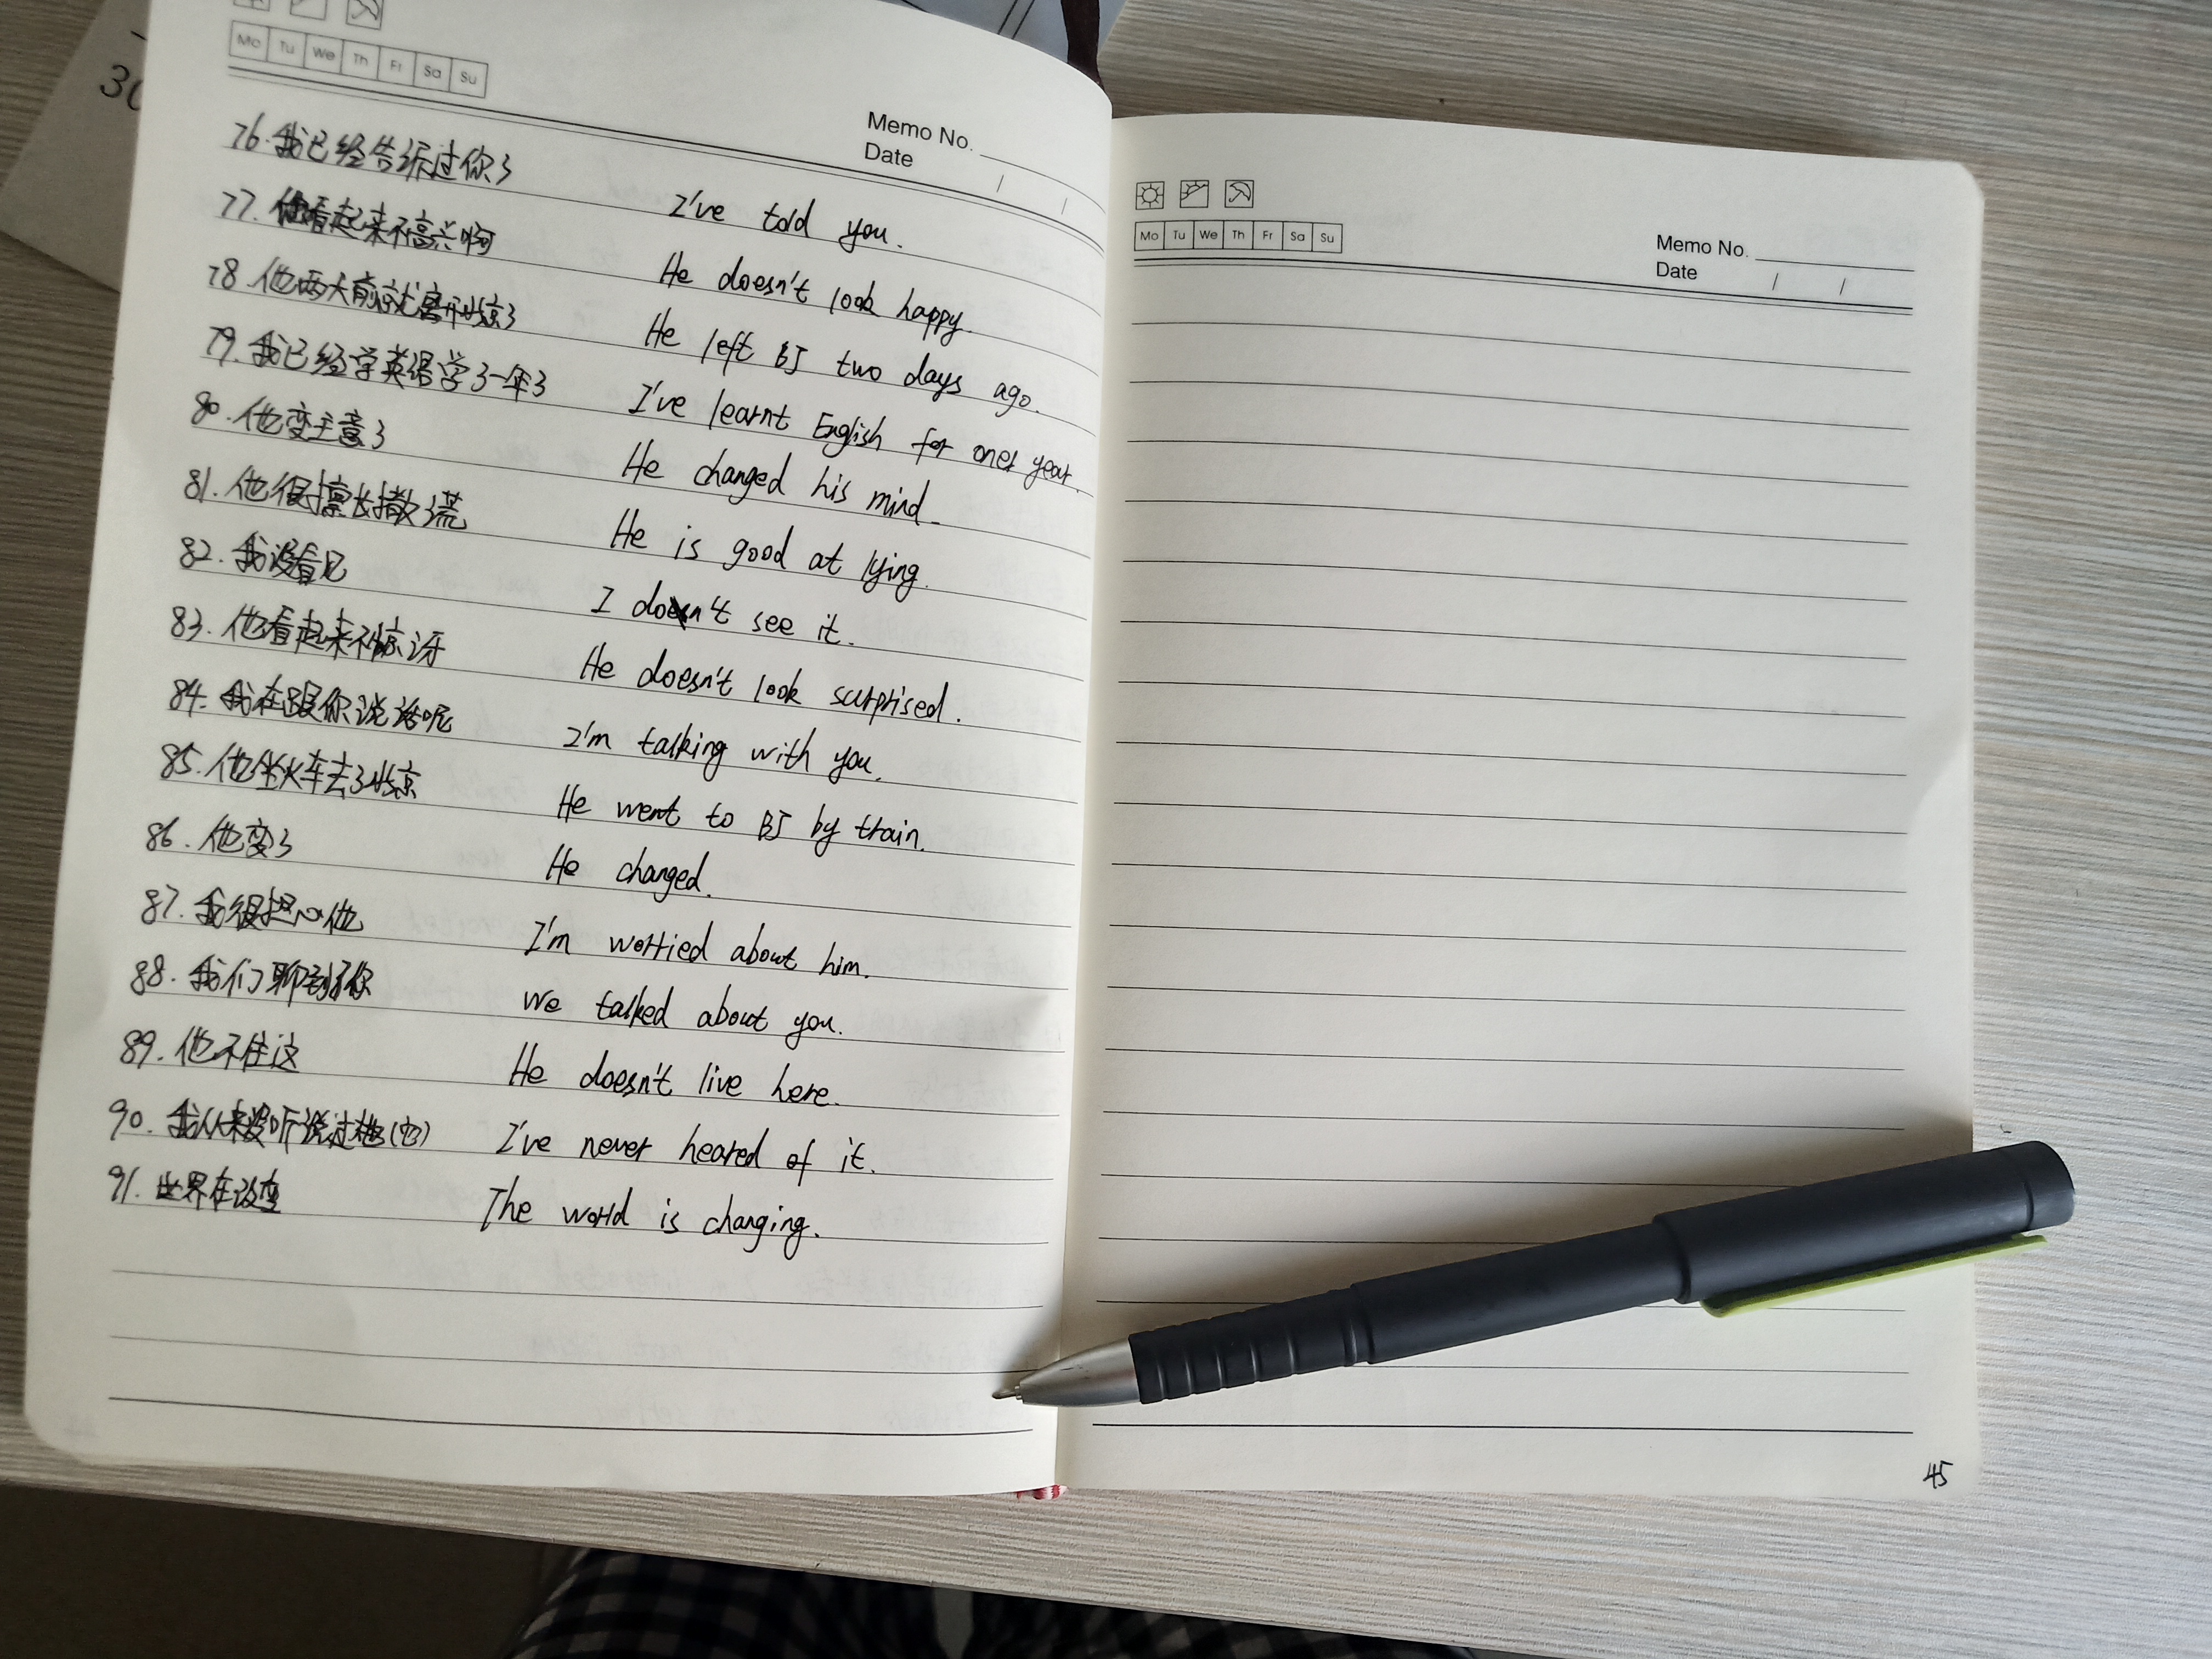 30
Mo Tu We Th Fr Sa Su
Memo No.
Date / /
76.我已经告诉过你了 I've told you.
77.他看起来不高兴啊 He doesn't look happy.
78.他两天前就离开北京了 He left BJ two days ago.
79.我已经学英语学了一年了 I've learnt English for one year.
80.他变主意了 He changed his mind.
81.他很擅长撒谎 He is good at lying.
82.我没看见 I don't see it.
83.他看起来不惊讶 He doesn't look surprised.
84.我在跟你说话呢 I'm talking with you.
85.他坐火车去了北京 He went to BJ by train.
86.他变了 He changed.
87.我很担心他 I'm worried about him.
88.我们聊到了你 We talked about you.
89.他不住这 He doesn't live here.
90.我从来没听说过他(它) I've never heared of it.
91.世界在改变 The world is changing.
Mo Tu We Th Fr Sa Su
Memo No.
Date / /
45